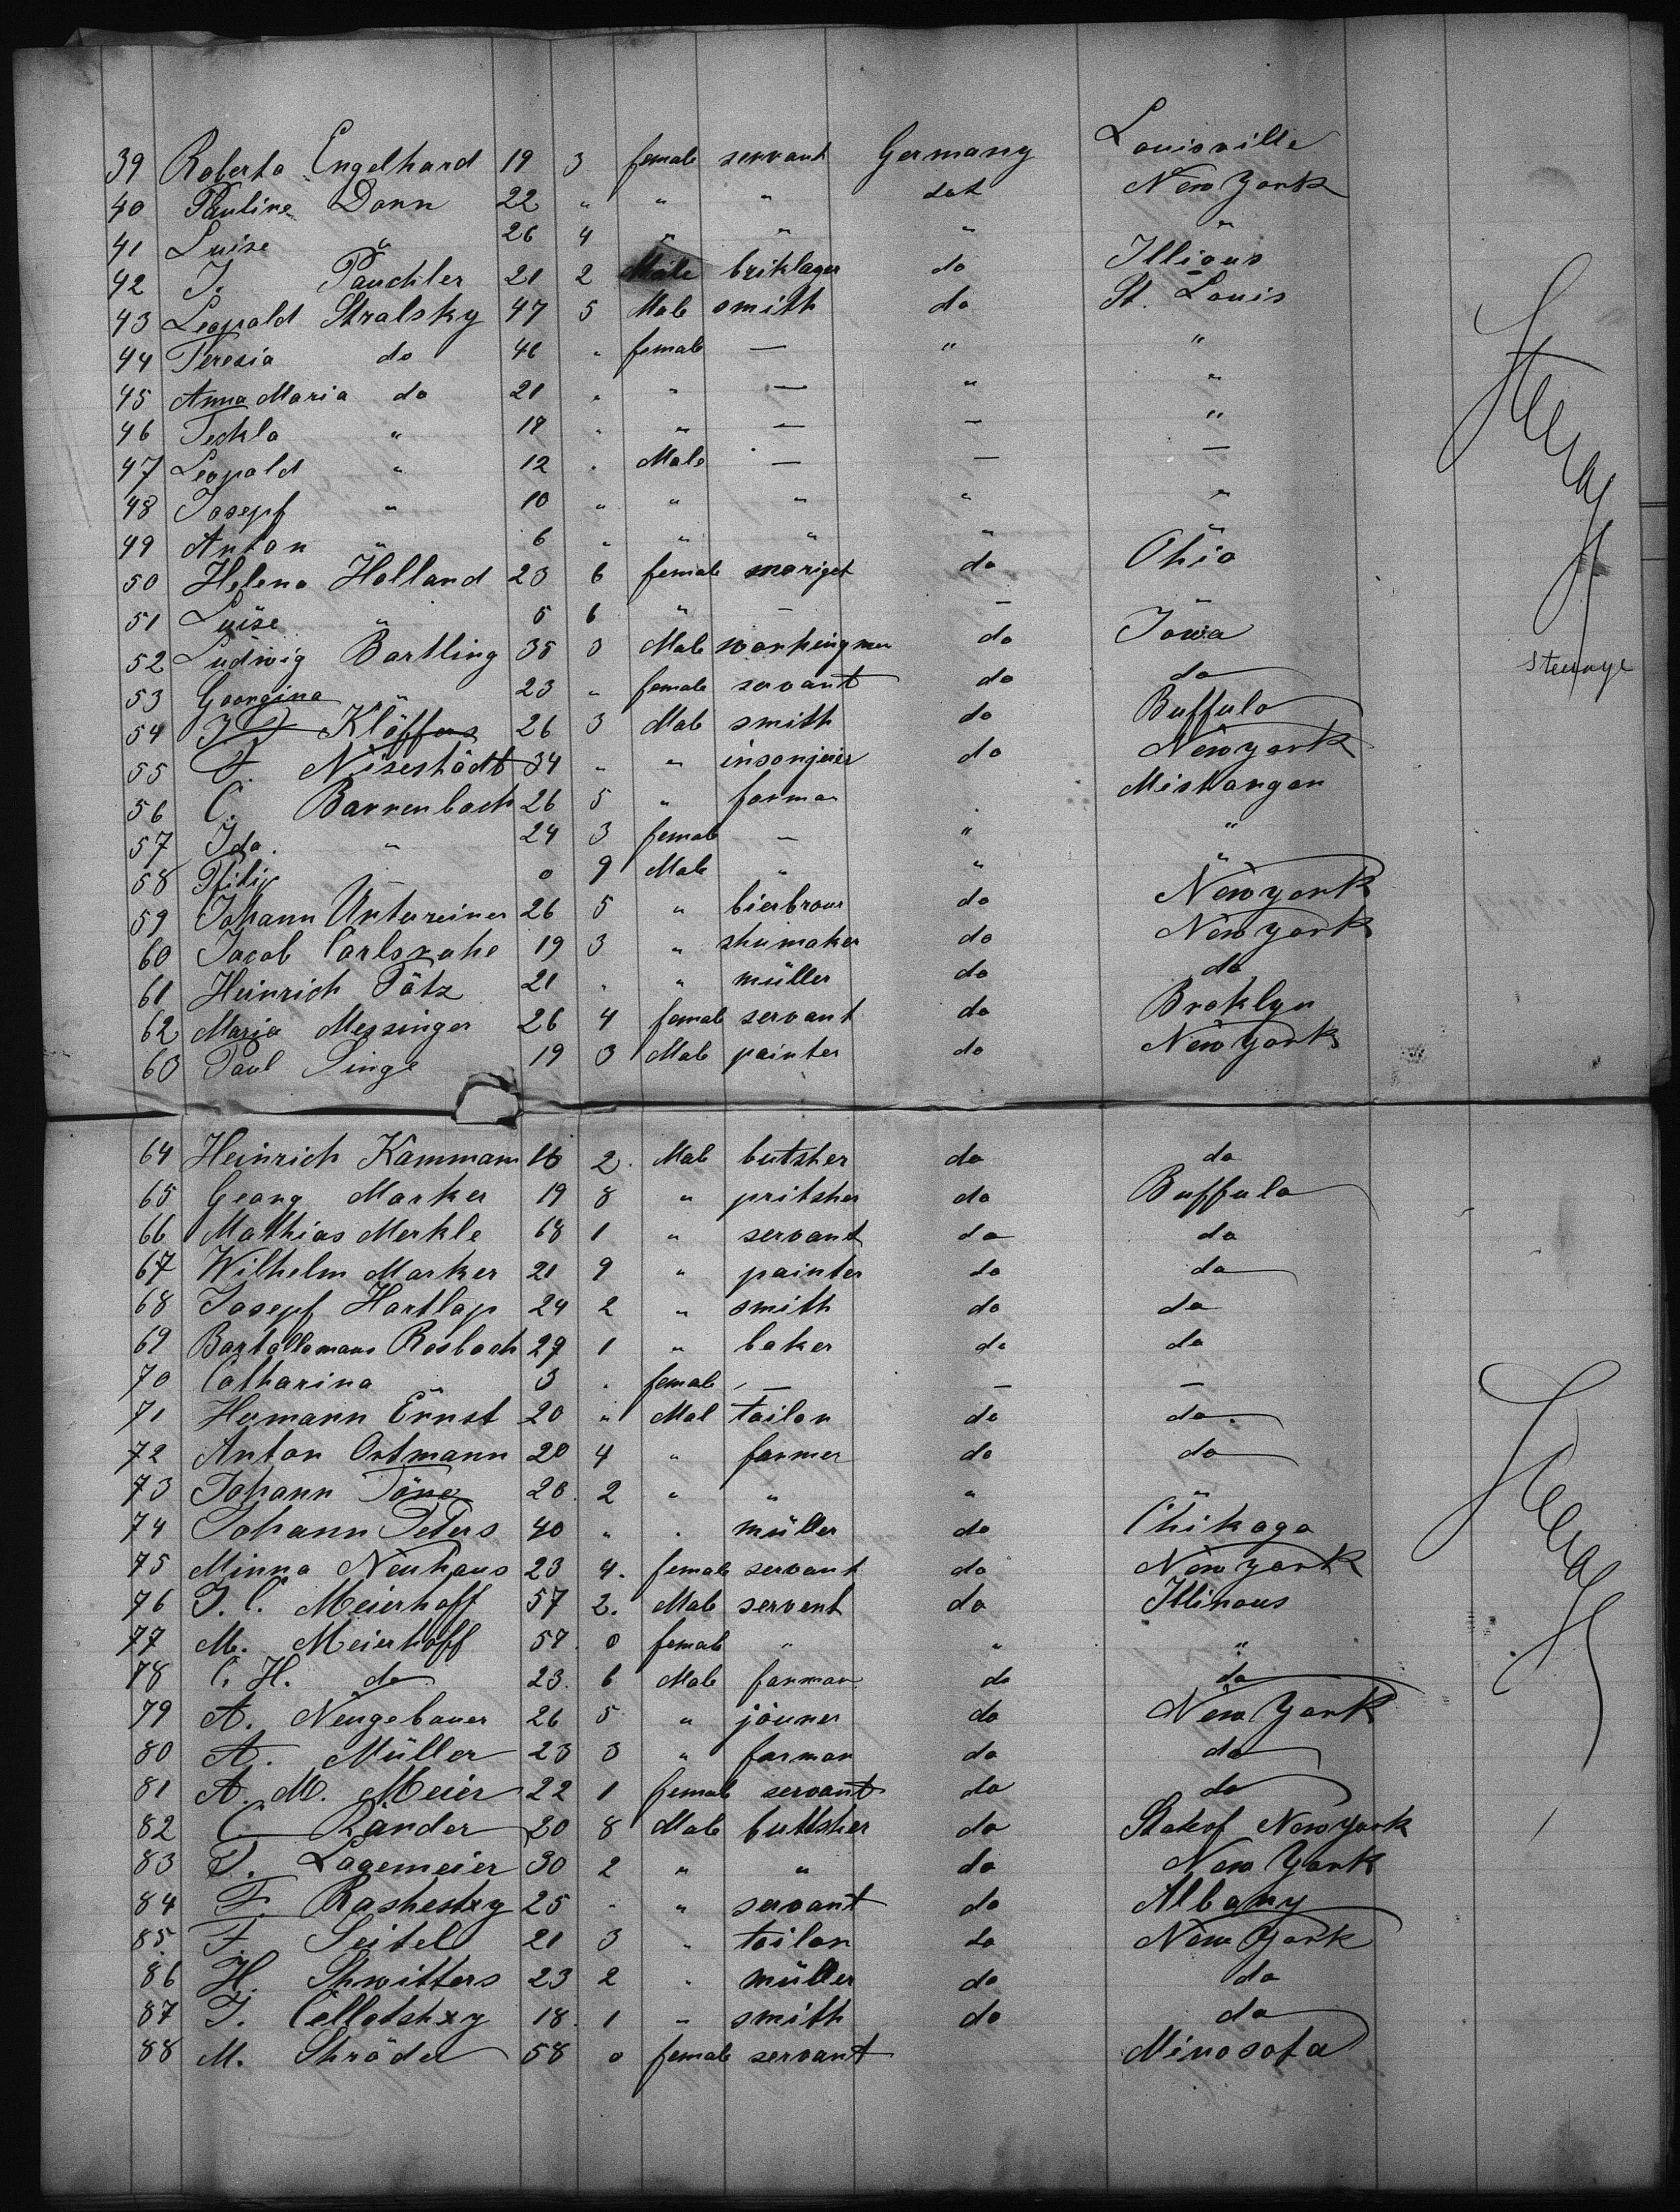 39 Roberto Engelhard 19 3 female servant Germany Louisville
40 Pauline Dorn 22 " " " dot New York
41 Luise " 26 4 " " " "
42 J. Pauchler 21 2 Male briklager do Illious
43 Leopold Stralsky 47 5 Male smith do St. Louis
44 Teresia do 46 " female — " "
45 Anna Maria do 21 " " — " "
46 Teckla " 18 " " — — "
47 Leopold " 12 " Male — — —
48 Josepf " 10 " " " " "
49 Anton " 6 " " " " "
50 Helena Holland 23 6 female mariget do Ohio
51 Luise " 5 6 " — — "
52 Ludwig Bartling 35 3 Male workingmen do Iowa
53 Georgina " 23 " female servant do do
54 Klöffers 26 3 Male smith do Buffulo
55 F. Nisestädt 34 " " insonjeier do Newyork
56 C. Barrenbach 26 5 " farmer Mishangan
57 Ida. " 24 3 female — " "
58 Pfilip — 0 9 Male " " "
59 Johann Untereiner 26 5 " bierbrour do Newyork
60 Jacob Carlsruhe 19 3 " shumaker do New york
61 Heinrich Pätz 21 " " müller do do
62 Maria Messinger 26 4 female servant do Broklyn
63 Paul Singe 19 3 Male painter do New York
steurage
64 Heinrich Kammann 16 2. Male butsher do do
65 Georg Marker 19 8 " pritsher do Buffulo
66 Mathias Merkle 68 1 " servant do do
67 Wilhelm Marker 21 9 " painter do do
68 Josepf Hartlap 24 2 " smith do do
69 Bartollomaus Rosbach 29 1 " baker do do
70 Catharina " 3 " female — — —
71 Hermann Ernst 20 " Mal tailor do do
72 Anton Ortmann 20 4 " farmer do do
73 Johann Töne 20. 2 " " " "
74 Johann Peters 40 " " müller do Chikago
75 Minna Neuhaus 23 4. female servant do New york
76 J. C. Meierhoff 57 2. Male servent do Illinous
77 M. Meierhoff 57. 0 female " " "
78 C. H. do 23. 6 Male farmar do do
79 A. Neugebauer 26 5 " jouner do New York
80 A. Müller 23 3 " farmar do do
81 A. M. Meier 22 1 female servant do do
82 C. Ränder 20 8 Male buttsher do State of New york
83 F. Lagemeier 30 2 " " do New York
84 F. Rashestxy 25 " " servant do Albany
85 F. Seitel 21 3 " tailor do New York
86 H. Shwitters 23 2 " müller do do
87 J. Cellotshxy 18. 1 " smith do do
88 M. Shröder 58 0 female servant Minosota